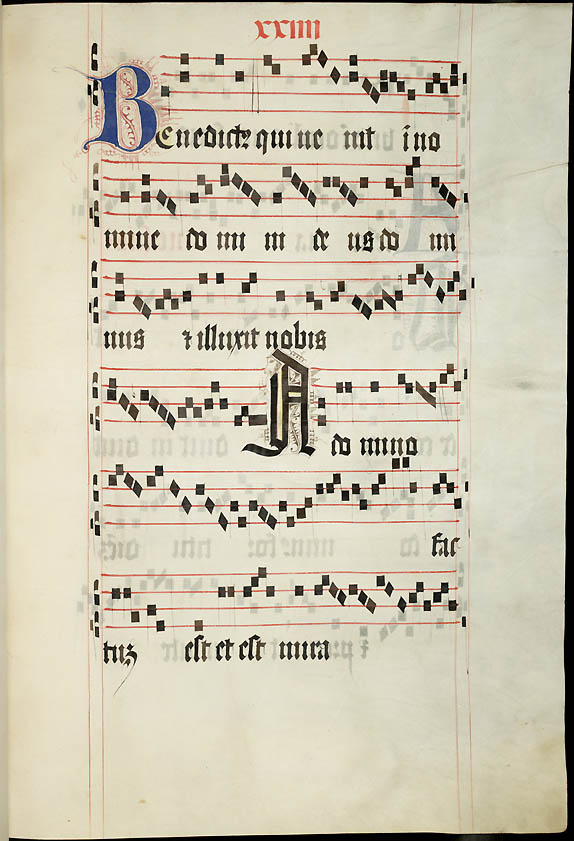 xxiiii
Benedictꝰ qui ue nit i no
mine do mi ni de us do mi
nus ⁊ illuxit nobis
A do mino
fac
tuꝫ est et est mira